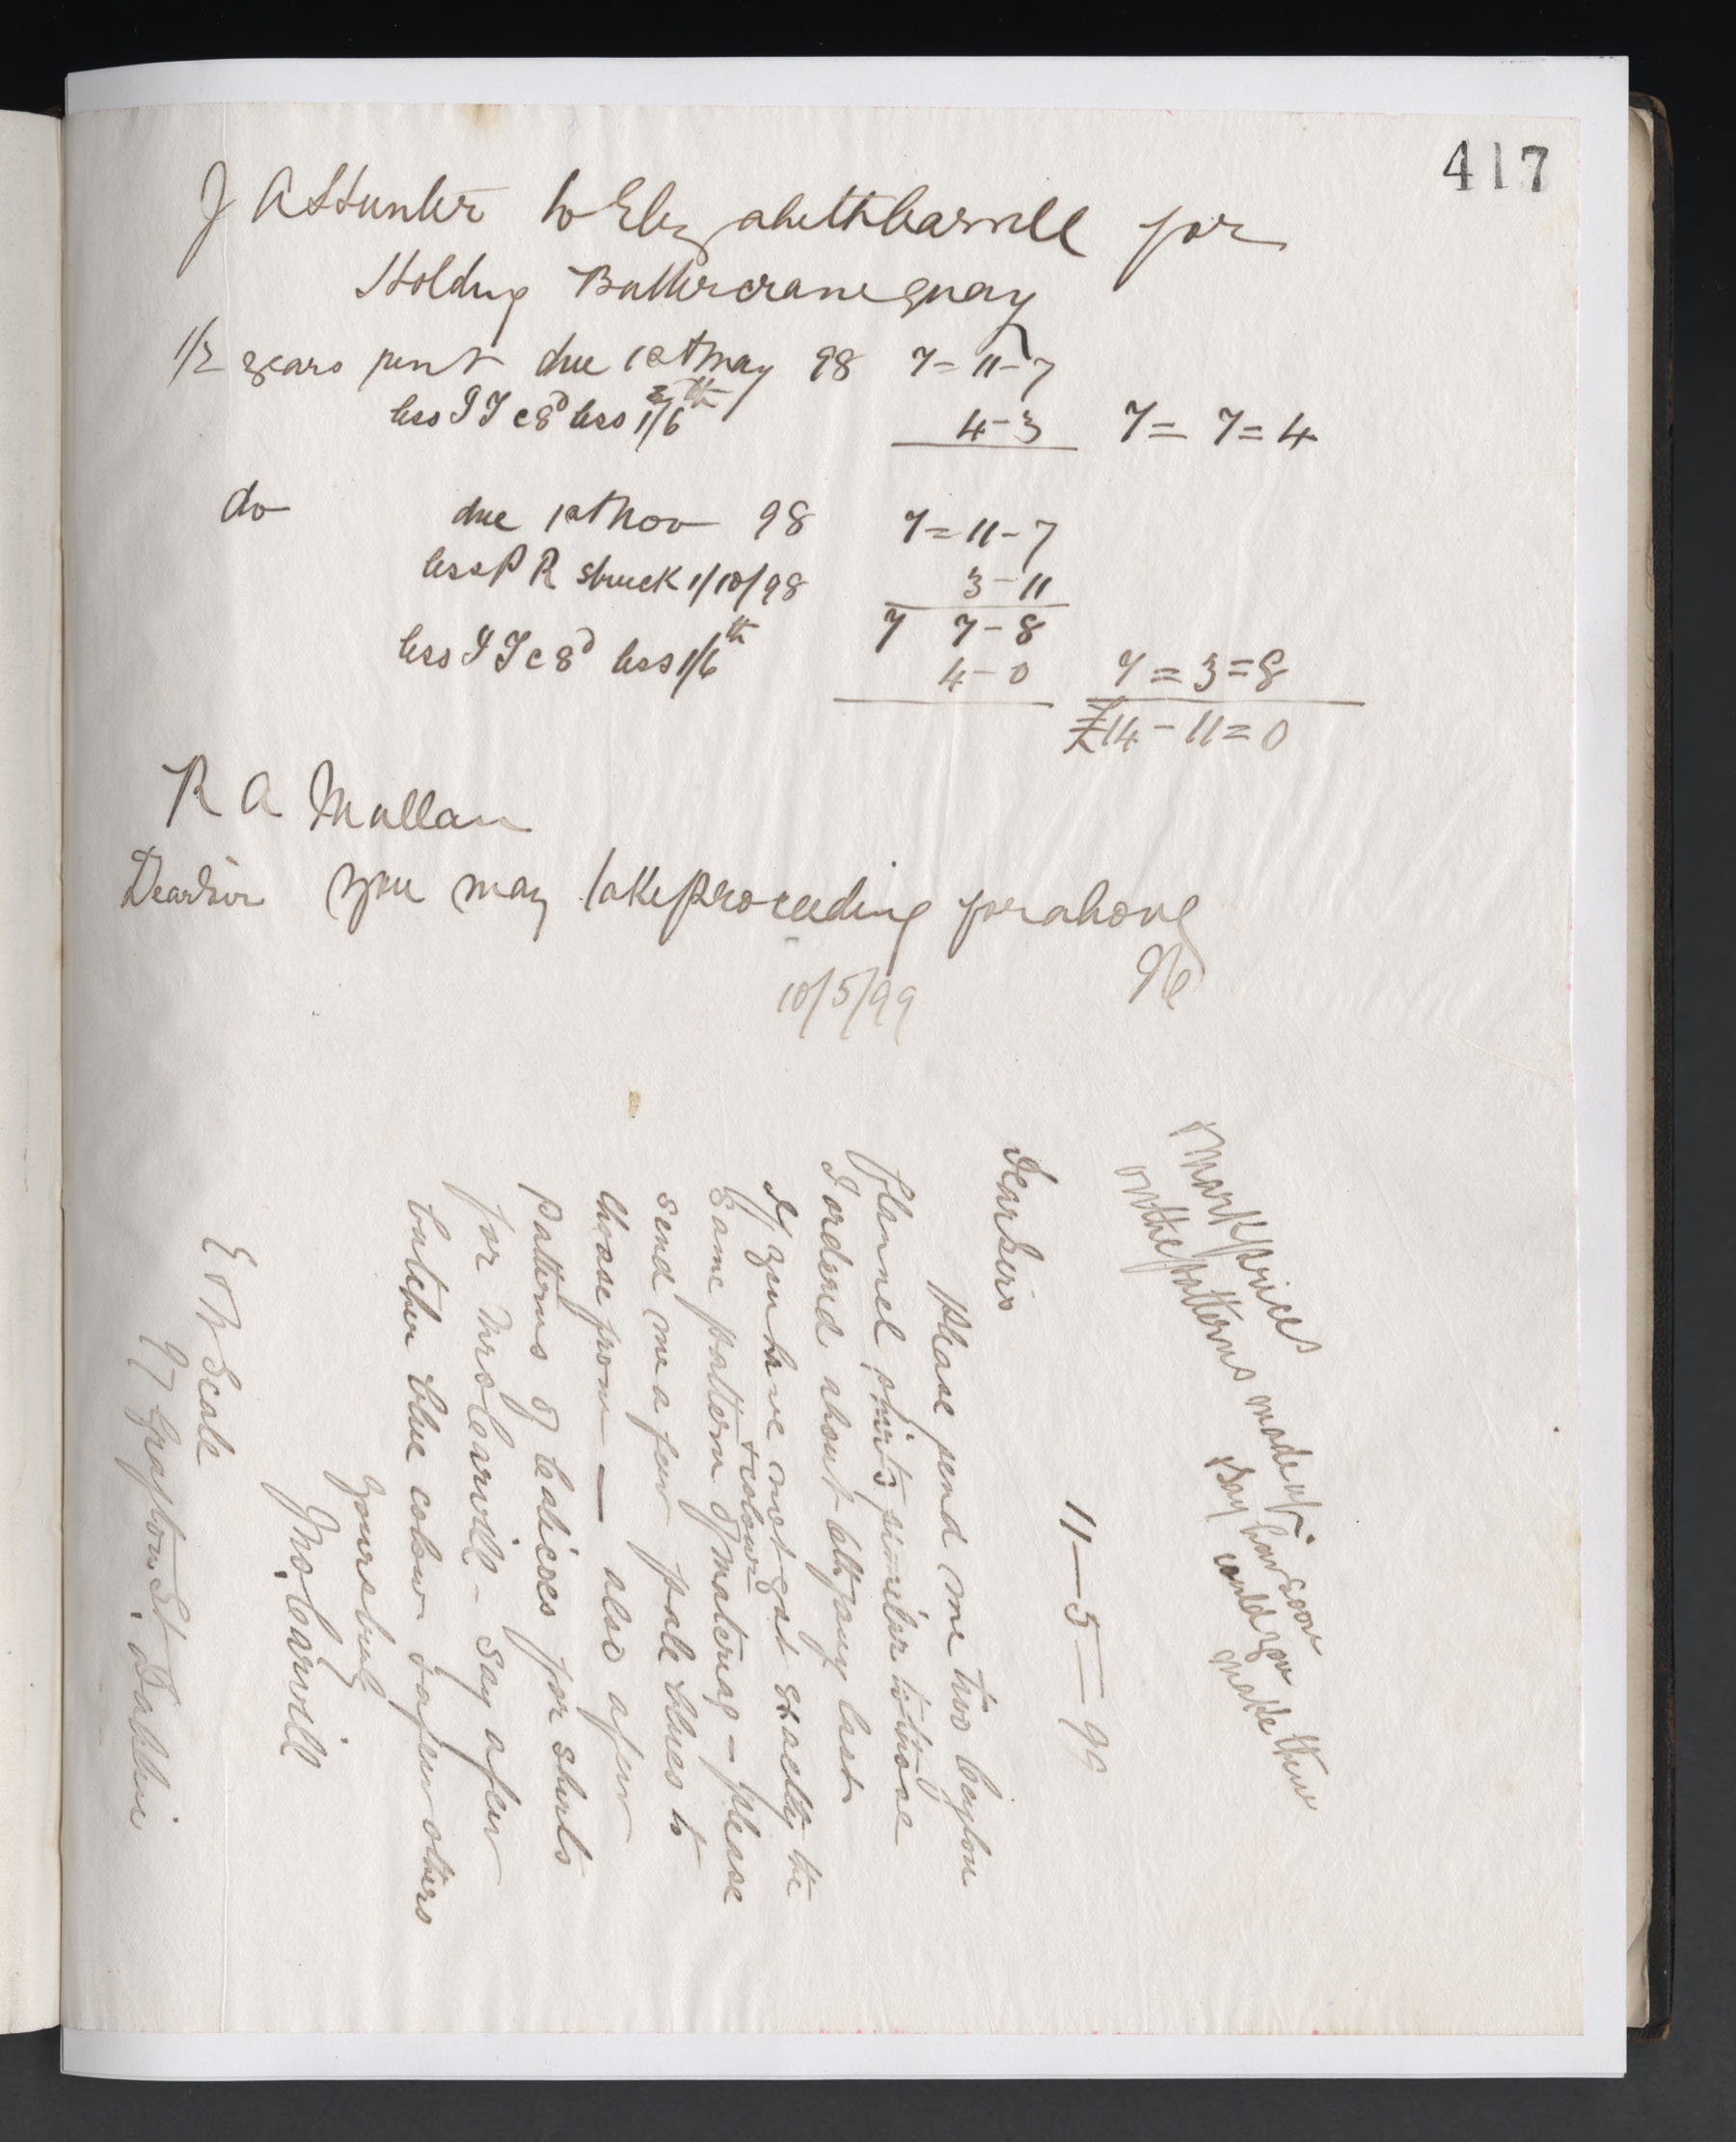 417
J A Hunter to Elizabeth Carvill for
Holding Buttercrane quay
1/2 years rent due 1st May 98 7=11-7
less I T @ 8d less 1/6th 4-3 7=7=4
do due 1st Nov 98 7=11-7
less P R struck 1/10/98 3-11
7 7-8
less I T @ 8d less 1/6th 4-0 7=3=8
£14-11=0
R A Mullan
Dear Sir you may take proceeding for above
10/5/99
Mark prices
on the patterns made up
Say how soon
could you
make them
11-5-99
Dear Sirs
Please send me two Ceylon
flannel shirts similar to those
I ordered about last
If you have not got exactly the
same pattern & colour of material - please
send me a few pale blues to
choose from - also a few
patterns of calicoes for shirts
for Mrs Carvill - say a few
butcher blue colour & a few others
yours truly
Jno. Carvill
E & W Seale
97 Grafton St. Dublin